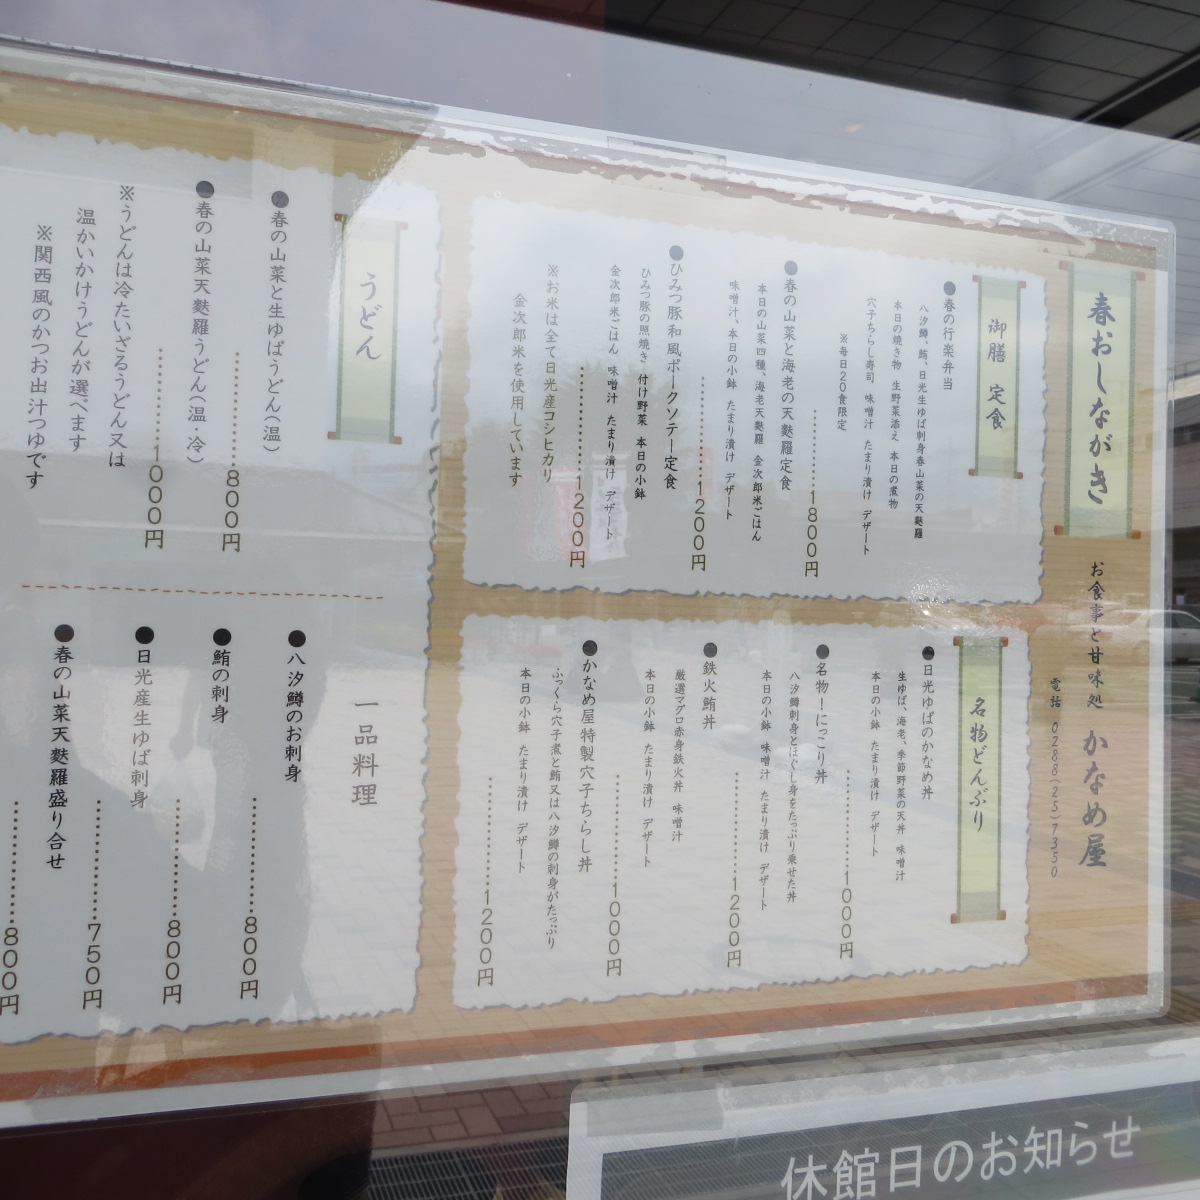 春おしながき
お食事と甘味処 かなめ屋
電話 0288(25)7350
御膳 定食
●春の行楽弁当
八汐鱒、鮪、日光生ゆば刺身春山菜の天麩羅
本日の焼き物 生野菜添え 本日の煮物
穴子ちらし寿司 味噌汁 たまり漬け デザート
※毎日20食限定
………1800円
●春の山菜と海老の天麩羅定食
本日の山菜四種、海老天麩羅 金次郎米ごはん
味噌汁、本日の小鉢 たまり漬け デザート
………1200円
●ひみつ豚和風ポークソテー定食
ひみつ豚の照焼き 付け野菜 本日の小鉢
金次郎米ごはん 味噌汁 たまり漬け デザート
………1200円
※お米は全て日光産コシヒカリ
金次郎米を使用しています
名物どんぶり
●日光ゆばのかなめ丼
生ゆば、海老、季節野菜の天丼 味噌汁
本日の小鉢 たまり漬け デザート
………1000円
●名物!にっこり丼
八汐鱒刺身とほぐし身をたっぷり乗せた丼
本日の小鉢 味噌汁 たまり漬け デザート
………1200円
●鉄火鮪丼
厳選マグロ赤身鉄火丼 味噌汁
本日の小鉢 たまり漬け デザート
………1000円
●かなめ屋特製穴子ちらし丼
ふっくら穴子煮と鮪又は八汐鱒の刺身がたっぷり
本日の小鉢 たまり漬け デザート
………1200円
うどん
●春の山菜と生ゆばうどん(温)
………800円
●春の山菜天麩羅うどん(温・冷)
………1000円
※うどんは冷たいざるうどん又は
温かいかけうどんが選べます
※関西風のかつお出汁つゆです
一品料理
●八汐鱒のお刺身
………800円
●鮪の刺身
………800円
●日光産生ゆば刺身
………750円
●春の山菜天麩羅盛り合せ
………800円
休館日のお知らせ